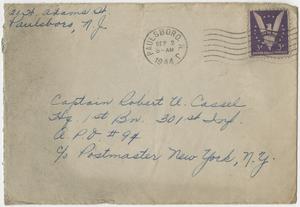 Adams St.
Paulsboro, N.J.
PAULSBORO, N.J.
SEP 3
5-AM
1944
Captain Robert U. Cassel
Hq 1st Bn. 301st Inf.
A P O # 94
c/o Postmaster New York, N.Y.